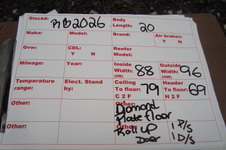 Stock#: PTB2026 Body Length: 20
Make: Model: Brand: Air brakes: Y N
Gvw: CDL: Y N Reefer Model:
Mileage: Year: Inside Width: 88 Outside Width: 96
Temperature range: Elect. Stand by: Ceiling To floor: 79 C 2 F Header To floor: 69 H 2 F
Other: Other: Diamond
Plate floor
Other: Roll up 1 P/S
Door 1 D/S